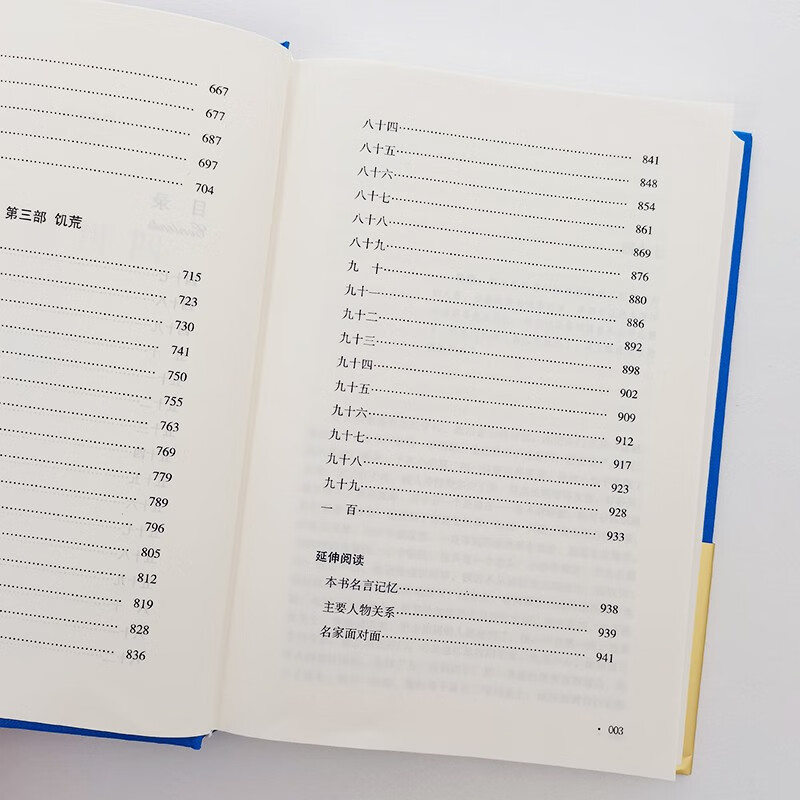 667
677
687
697
704
第三部 饥荒
715
723
730
741
750
755
763
769
779
789
796
805
812
819
828
836
八十四 841
八十五 848
八十六 854
八十七 861
八十八 869
八十九 876
九 十 880
九十一 886
九十二 892
九十三 898
九十四 902
九十五 909
九十六 912
九十七 917
九十八 923
九十九 928
一 百 933
延伸阅读
本书名言记忆 938
主要人物关系 939
名家面对面 941
· 003